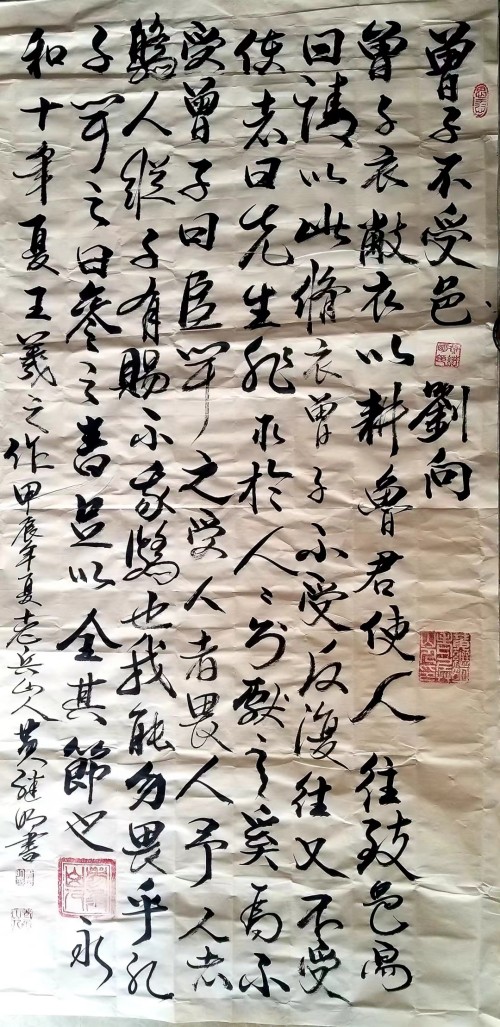 曾子不受邑 劉向
曾子衣敝衣以耕魯君使人往致邑焉
曰請以此脩衣曾子不受反復往又不受
使者曰先生非求於人人則獻之奚為不
受曾子曰臣聞之受人者畏人予人者
驕人縱子有賜不我驕也我能勿畏乎孔
子聞之曰參之言足以全其節也 永
和十年夏王羲之作甲辰年夏老兵山人黃繼書